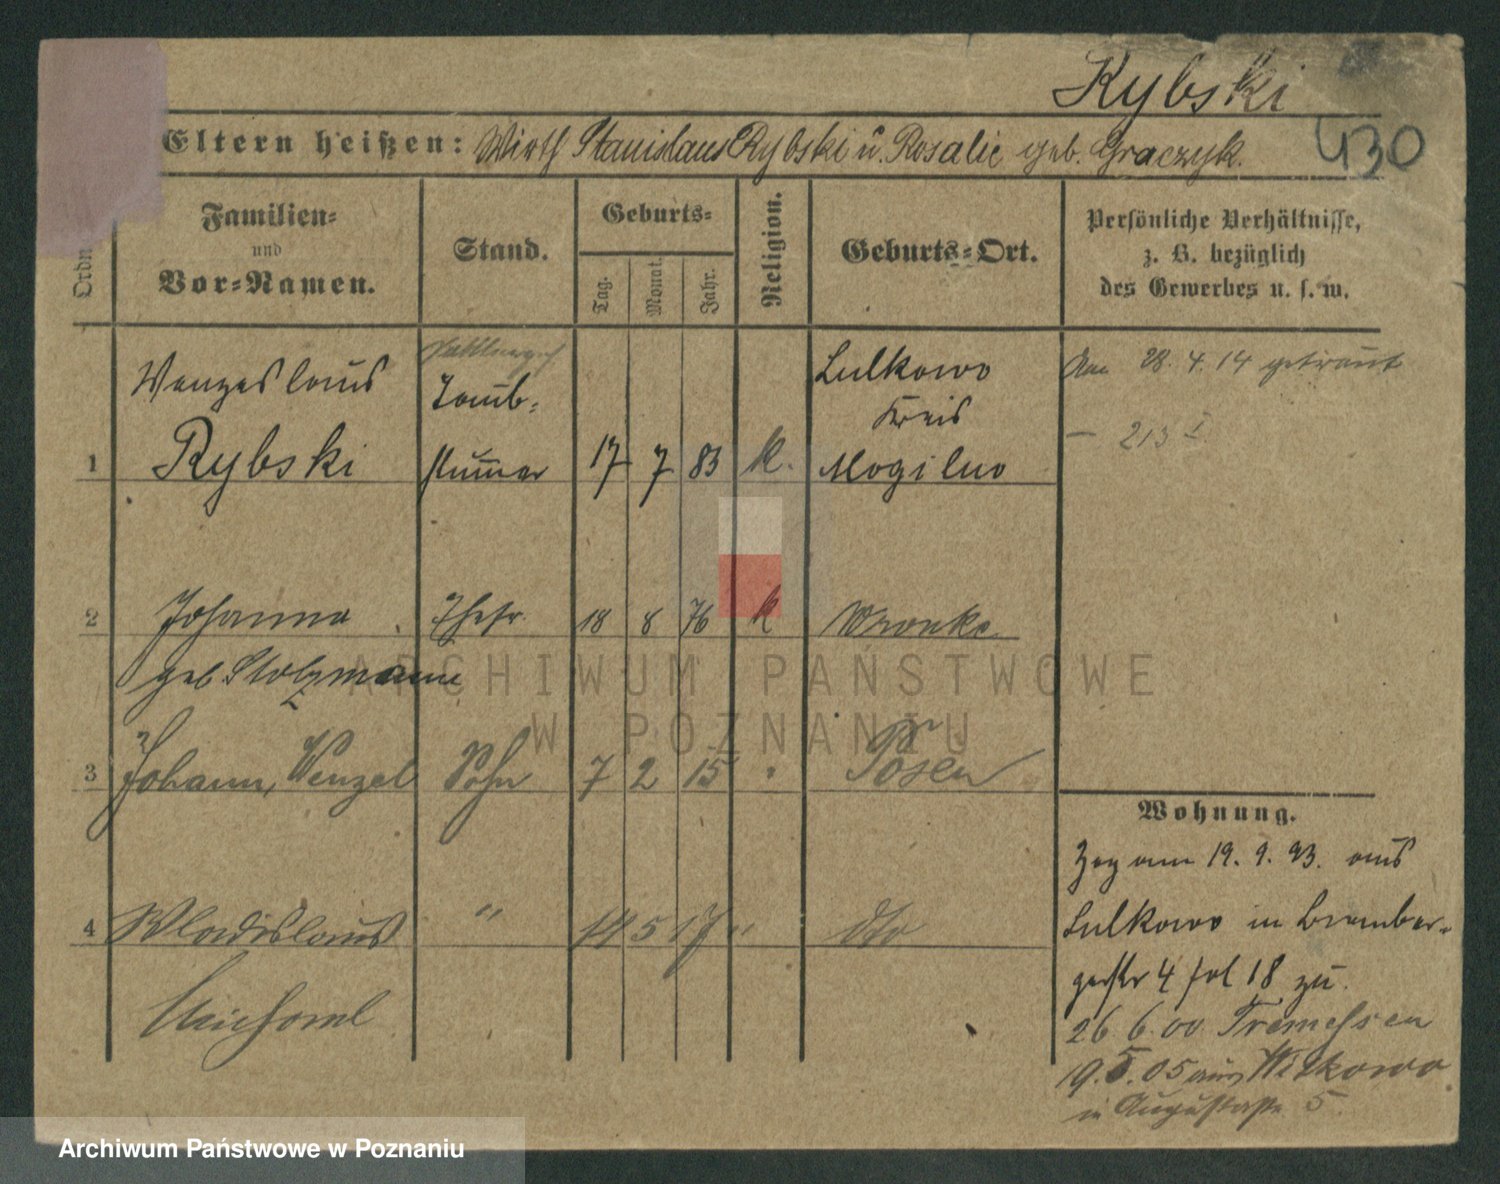 Rybski
430
Eltern heißen: Wirth Stanislaus Rybski u. Rosalie geb. Graczyk.
Ordn
Familien-
und
Vor-Namen.
Stand.
Geburts-
Tag.
Monat.
Jahr.
Religion.
Geburts-Ort.
Persönliche Verhältnisse,
z. B. bezüglich
des Gewerbes u. s. w.
Wenzeslaus
Taub-
Lulkowo
Kreis
Am 28. 4. 14 getraut
- 213 I
1 Rybski stummer 17 7 83 k. Mogilno
2 Johanna Ehefr. 18 8 76 k Wronke
geb Stolzmann
3 Johann, Wenzel Sohn 7 2 15 " Posen
4 Wladislaus " 14 5 17 " dto
Wohnung.
Zog am 19. 9. 93. aus
Lulkowo in Bromber-
gerstr 4 fol 18 zu.
26. 6. 00. Tremessen
19. 5. 05 aus Witkowo
in Augustastr 5
ARCHIWUM PAŃSTWOWE
W POZNANIU
Archiwum Państwowe w Poznaniu